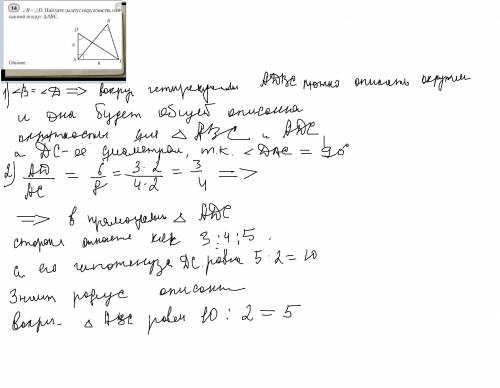 14 ∠B = ∠D. Найдите радиус окружности, опи-
санной вокруг △ABC.
B
D
6
A 8 C
Ответ:
1) ∠B = ∠D ⟹ вокруг ADBC можно описать окружн
и она будет общей описанна
окружностью для △ ABC и ADC
а DC - ее диаметром, т.к. ∠DAC = 90°
2) AD/AC = 6/8 = 3·2/4·2 = 3/4 ⟹
⟹ в прямоугольн △ ADC
стороны относят как 3:4:5.
а его гипотенуза DC равна 5·2=10.
Значит радиус описанн
вокруг △ ABC равен 10:2=5